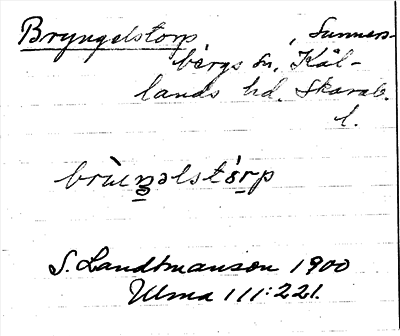 Bryngelstorp, Sunners-
bergs sn, Kål-
lands hd. Skarab.
l.
brùŋəlstórp
S. Landtmanson 1900
Ulma 111:221.